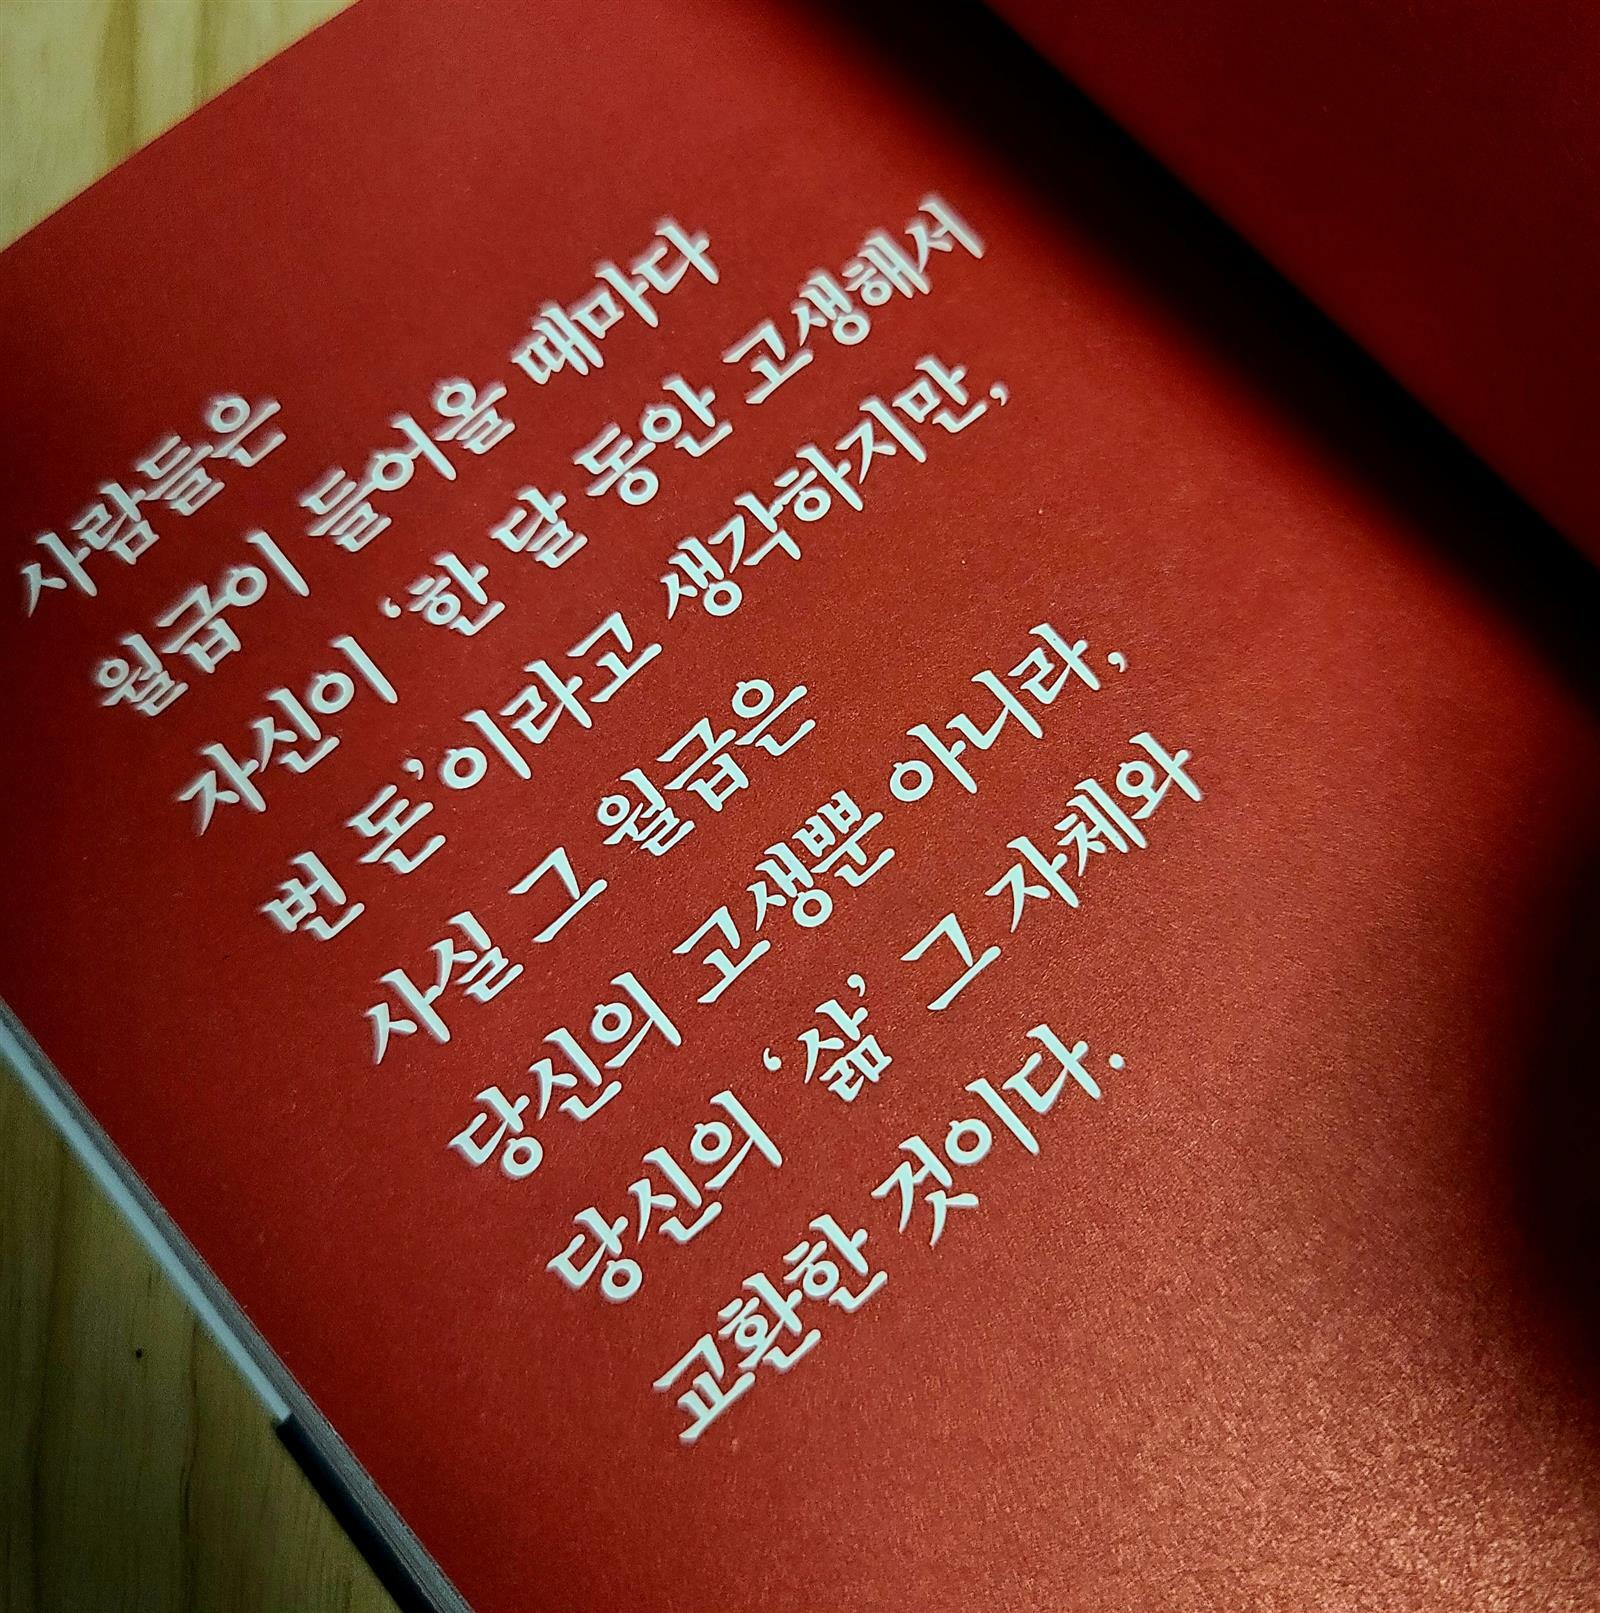 사람들은
월급이 들어올 때마다
자신이 ‘한 달 동안 고생해서
번 돈’이라고 생각하지만,
사실 그 월급은
당신의 고생뿐 아니라,
당신의 ‘삶’ 그 자체와
교환한 것이다.